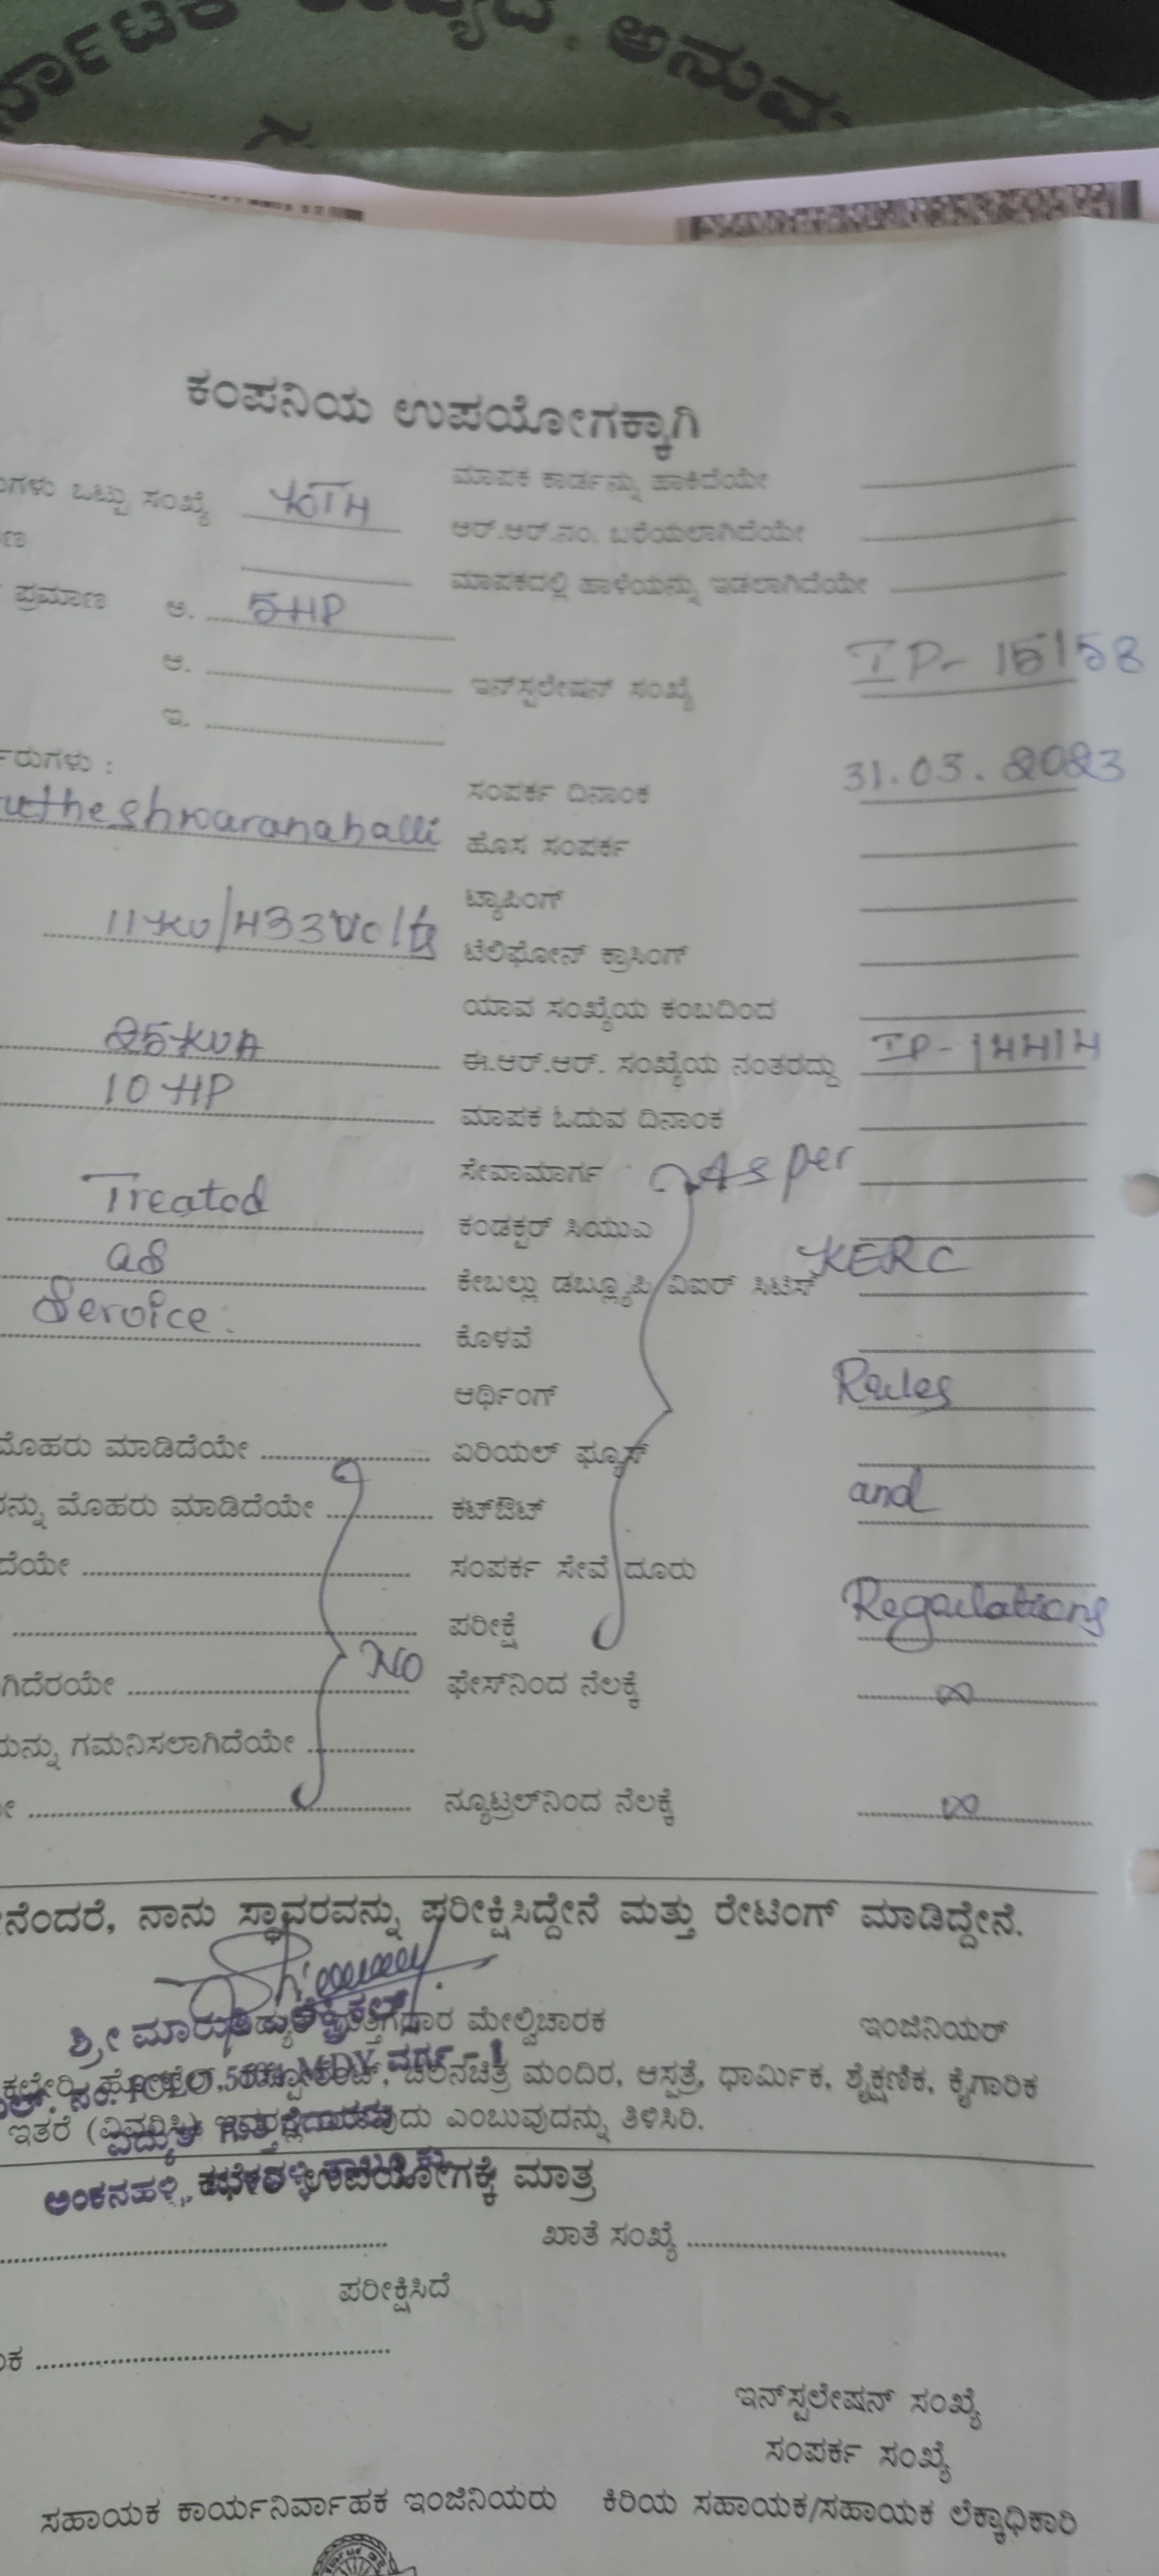 ರ್ನಾಟಕ ರಾಜ್ಯದ. ಅನುವ
ಕಂಪನಿಯ ಉಪಯೋಗಕ್ಕಾಗಿ
ಗಳು ಒಟ್ಟು ಸಂಖ್ಯೆ
ಮಾಪಕ ಕಾರ್ಡನ್ನು ಹಾಕಿದೆಯೇ
ಆರ್.ಆರ್.ನಂ. ಬರೆಯಲಾಗಿದೆಯೇ
ಮಾಪಕದಲ್ಲಿ ಹಾಳೆಯನ್ನು ಇಡಲಾಗಿದೆಯೇ
ಪ್ರಮಾಣ ಅ. 5HP
ಆ.
ಇನ್‌ಸ್ಟಲೇಷನ್ ಸಂಖ್ಯೆ IP- 15158
ಇ.
ರುಗಳು :
utheshwaranahalli
ಸಂಪರ್ಕ ದಿನಾಂಕ 31.03.2023
ಹೊಸ ಸಂಪರ್ಕ
ಟ್ಯಾಪಿಂಗ್
11KV/433Volts
ಟೆಲಿಫೋನ್ ಕ್ರಾಸಿಂಗ್
ಯಾವ ಸಂಖ್ಯೆಯ ಕಂಬದಿಂದ
25KVA
ಈ.ಆರ್.ಆರ್. ಸಂಖ್ಯೆಯ ನಂತರದ್ದು IP-14414
10 HP
ಮಾಪಕ ಓದುವ ದಿನಾಂಕ
ಸೇವಾಮಾರ್ಗ As per
Treated
ಕಂಡಕ್ಟರ್ ಸಿಯುಎ
as
ಕೇಬಲ್ಲು ಡಬ್ಲ್ಯೂಪಿ ವಿಐಆರ್ ಸಿಟಿಸ್ KERC
Service.
ಕೊಳವೆ
ಆರ್ಥಿಂಗ್ Rules
ಮೊಹರು ಮಾಡಿದೆಯೇ
ಏರಿಯಲ್ ಫ್ಯೂಸ್
ನ್ನು ಮೊಹರು ಮಾಡಿದೆಯೇ
ಕಟ್‌ಔಟ್ and
ದೆಯೇ
ಸಂಪರ್ಕ ಸೇವೆ ದೂರು
ಪರೀಕ್ಷೆ Regulations
No
ಗಿದೆರಯೇ
ಫೇಸ್‌ನಿಂದ ನೆಲಕ್ಕೆ ∞
ಯನ್ನು ಗಮನಿಸಲಾಗಿದೆಯೇ
ನ್ಯೂಟ್ರಲ್‌ನಿಂದ ನೆಲಕ್ಕೆ ∞
ನೆಂದರೆ, ನಾನು ಸ್ಥಾವರವನ್ನು ಪರೀಕ್ಷಿಸಿದ್ದೇನೆ ಮತ್ತು ರೇಟಿಂಗ್ ಮಾಡಿದ್ದೇನೆ.
ಶ್ರೀ ಮಾರುತಿ
ಮೇಲ್ವಿಚಾರಕ ಇಂಜಿನಿಯರ್
ಚಲನಚಿತ್ರ ಮಂದಿರ, ಆಸ್ಪತ್ರೆ, ಧಾರ್ಮಿಕ, ಶೈಕ್ಷಣಿಕ, ಕೈಗಾರಿಕ
ಇತರೆ (ವಿವರಿಸಿ) ಎಂಬುವುದನ್ನು ತಿಳಿಸಿರಿ.
ಅಂಕನಹಳ್ಳಿ,
ಉಪಯೋಗಕ್ಕೆ ಮಾತ್ರ
ಖಾತೆ ಸಂಖ್ಯೆ
ಪರೀಕ್ಷಿಸಿದೆ
ಇನ್‌ಸ್ಟಲೇಷನ್ ಸಂಖ್ಯೆ
ಸಂಪರ್ಕ ಸಂಖ್ಯೆ
ಸಹಾಯಕ ಕಾರ್ಯನಿರ್ವಾಹಕ ಇಂಜಿನಿಯರು ಕಿರಿಯ ಸಹಾಯಕ/ಸಹಾಯಕ ಲೆಕ್ಕಾಧಿಕಾರಿ